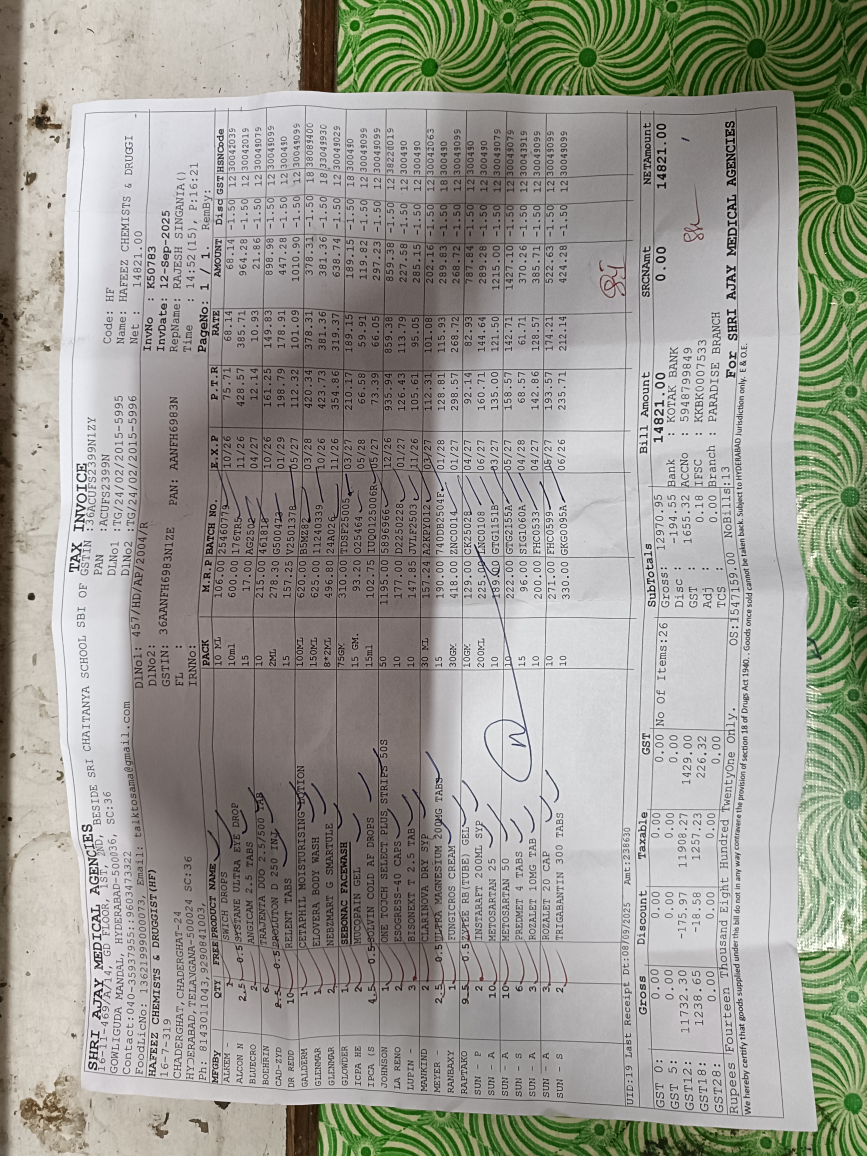 TAX INVOICE
SHRI AJAY MEDICAL AGENCIES
16-11-469/A/14, GD FLOOR, 1ST, 2ND, BESIDE SRI CHAITANYA SCHOOL SBI OF
GOWLIGUDA MANDAL, HYDERABAD-500036, SC:36
Contact:040-35937955:,9603473322
FoodLicNo: 13621999000073, Email: talktosama@gmail.com
GSTIN :36ACUFS2399N1ZY
PAN :ACUFS2399N
DLNo1 :TG/24/02/2015-5995
DlNo2 :TG/24/02/2015-5996
Code: HF
Name: HAFEEZ CHEMISTS & DRUGGI
Net : 14821.00
HAFEEZ CHEMISTS & DRUGGIST(HF)
16-7-319
CHADERGHAT, CHADERGHAT-24
HYDERABAD, TELANGANA-500024 SC:36
Ph: 8143011043, 9290841003,
DlNo1: 457/HD/AP/2004/R
DlNo2:
GSTIN: 36AANFH6983N1ZE PAN: AANFH6983N
FL :
IRNNo:
InvNo : K50783
InvDate: 12-Sep-2025
RepName: RAJESH SINGANIA()
Time : 14:52(15), P:16:21
PageNo: 1 / 1. RemBy:
MFGBy QTY FREE PRODUCT NAME PACK M.R.P BATCH NO. E.X.P P.T.R RATE AMOUNT Disc GST HSNCode
ALKEM - 1 SWICH DROPS 10 ML 106.00 25460779 10/26 75.71 68.14 68.14 -1.50 12 30042039
ALCON N 2.5 0.5 SYSTANE ULTRA EYE DROP 10ml 600.00 11/26 428.57 385.71 964.28 -1.50 12 30042019
BLUECRO 2 ANGICAM 2.5 TABS 15 17.00 04/27 12.14 10.93 21.86 -1.50 12 30049079
BOEHRIN 6 TRAJENTA DUO 2.5/500 TAB 10 215.00 10/26 161.25 149.83 898.98 -1.50 12 30049099
CAD-ZYD 2.5 0.5 PROLUTON D 250 INJ 2ML 278.30 01/29 198.79 178.91 447.28 -1.50 12 300490
DR REDD 10 RELENT TABS 15 157.25 V2501378 05/27 112.32 101.09 1010.90 -1.50 12 30049099
GALDERM 1 CETAPHIL MOISTURISING LOTION 100ML 620.00 03/28 420.34 378.31 378.31 -1.50 18 38089400
GLENMAR 1 ELOVERA BODY WASH 150ML 625.00 11240339 10/26 423.73 381.36 381.36 -1.50 18 33049930
GLENMAR 2 NEBZMART G SMARTULE 8*2ML 496.80 11/26 354.86 319.37 638.74 -1.50 12 30049029
GLOWDER 1 SEBONAC FACEWASH 75GM 310.00 TDSF25005 03/27 210.17 189.15 189.15 -1.50 18 300490
ICPA HE 2 MUCOPAIN GEL 15 GM. 93.20 O25464 05/28 66.58 59.91 119.82 -1.50 12 30049099
IPCA (S 4.5 0.5 SOLVIN COLD AF DROPS 15ml 102.75 IUQ0125006R 05/27 73.39 66.05 297.23 -1.50 12 30049099
JOHNSON 1 ONE TOJCH SELECT PLUS STRIPS 50S 50 1195.00 5896966 12/26 935.94 859.38 859.38 -1.50 12 38220019
LA RENO 2 ESOGRESS-40 CAPS 10 177.00 D2250228 01/27 126.43 113.79 227.58 -1.50 12 300490
LUPIN - 3 BISONEXT T 2.5 TAB 10 147.85 JVIF2503 11/26 105.61 95.05 285.15 -1.50 12 300490
MANKIND 2 CLARINOVA DRY SYP 30 ML 157.24 AZKPZ012 03/27 112.31 101.08 202.16 -1.50 12 30042063
MEYER - 2.5 0.5 ULTRA MAGNESIUM 200MG TABS 15 190.00 74DDB2504F 01/28 128.81 115.93 289.83 -1.50 18 300490
RANBAXY 1 FUNGICROS CREAM 30GM 418.00 ZNC0014 01/27 298.57 268.72 268.72 -1.50 12 30049099
RAPTAKO 9.5 0.5 RE(TUBE) GEL 10GM 129.00 CK25028 04/27 92.14 82.93 787.84 -1.50 12 300490
SUN - P 2 INSTARAFT 200ML SYP 200ML 225.00 06/27 160.71 144.64 289.28 -1.50 12 300490
SUN - A 10 METOSARTAN 25 10 189.00 GTG1151B 04/27 135.00 121.50 1215.00 -1.50 12 30049079
SUN - A 10 METOSARTAN 50 10 222.00 GTG2155A 05/27 158.57 142.71 1427.10 -1.50 12 30049079
SUN - S 6 PREDMET 4 TABS 15 96.00 SIG1060A 04/28 68.57 61.71 370.26 -1.50 12 30043919
SUN - A 3 ROZALET 10MG TAB 10 200.00 FHC0533 04/27 142.86 128.57 385.71 -1.50 12 30049099
SUN - A 3 ROZALET 20 CAP 10 271.00 FHC0599 05/27 193.57 174.21 522.63 -1.50 12 30049099
SUN - S 2 TRIGABANTIN 300 TABS 10 330.00 GKG0095A 06/26 235.71 212.14 424.28 -1.50 12 30049099
UID:19 Last Receipt Dt:08/09/2025 Amt:238630
Gross Discount Taxable GST
GST 0: 0.00 0.00 0.00 0.00
GST 5: 0.00 0.00 0.00 0.00
GST12: 11732.30 -175.97 11908.27 1429.00
GST18: 1238.65 -18.58 1257.23 226.32
GST28: 0.00 0.00 0.00 0.00
No Of Items:26
SubTotals
Gross: 12970.95
Disc : -194.55
GST : 1655.32
Adj : 0.18
TCS : 0.00
Bill Amount SRCNAmt NETAmount
14821.00 0.00 14821.00
Bank : KOTAK BANK
ACCNo : 5948799849
IFSC : KKBK0007533
Branch : PARADISE BRANCH
Rupees Fourteen Thousand Eight Hundred TwentyOne Only. OS:1547159.00 NoBills:13
For SHRI AJAY MEDICAL AGENCIES
We hereby certify that goods supplied under this bill do not in any way contravere the provision of section 18 of Drugs Act 1940. . Goods once sold cannot be taken back. Subject to HYDERABAD Jurisdiction only. E & O.E.